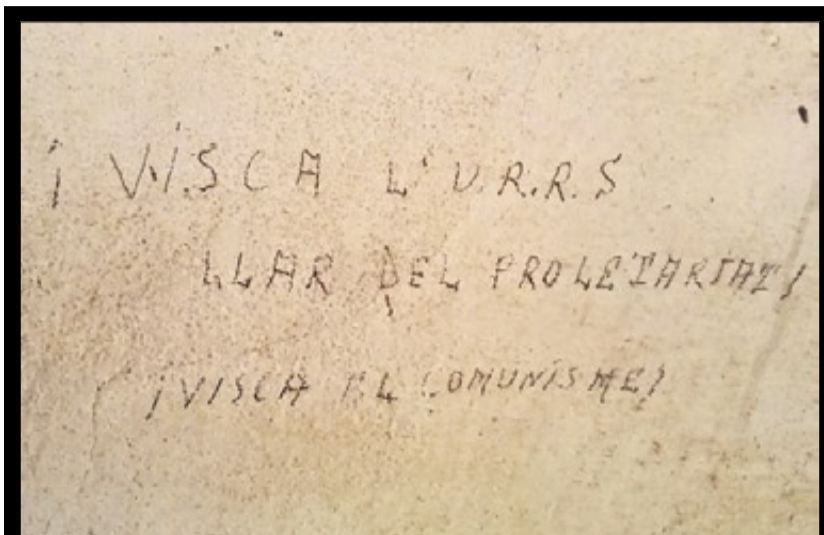 ¡ VISCA L'U.R.R.S
LLAR DEL PROLETARIAT!
¡VISCA EL COMUNISME!